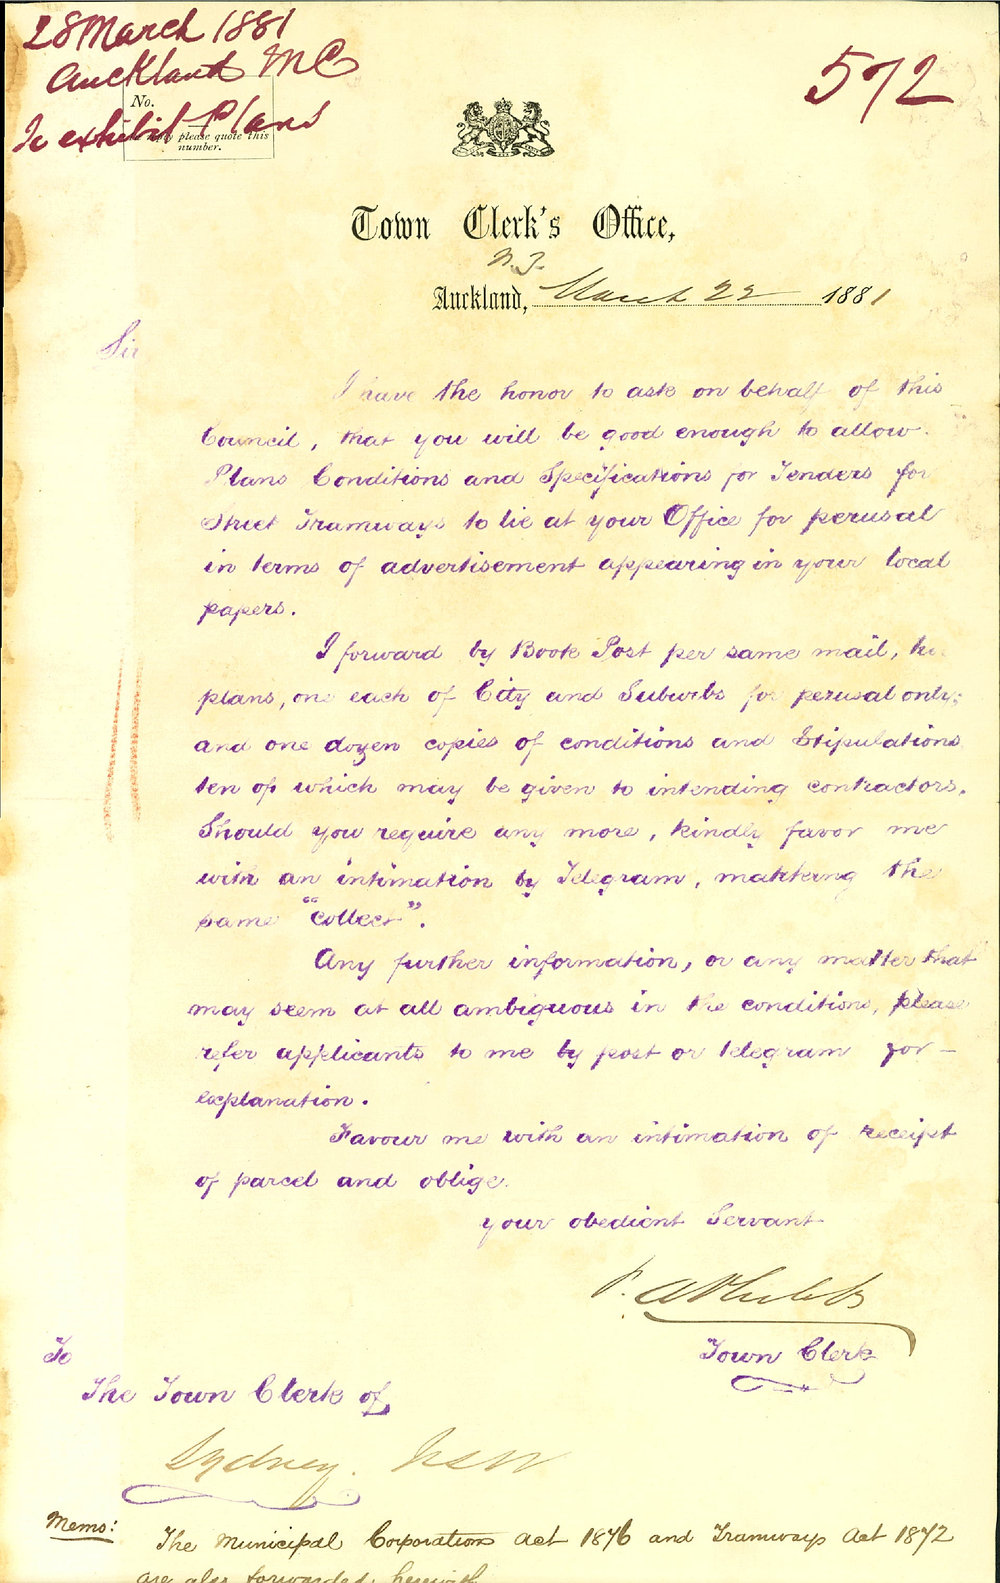 28 March 1881
Auckland MC
To exhibit Plans
No.
In reply please quote this
number.
572
Town Clerk's Office,
N.Z.
Auckland, March 22 1881
Sir
I have the honor to ask on behalf of this
Council, that you will be good enough to allow
Plans Conditions and Specifications for Tenders for
Street Tramways to lie at your Office for perusal
in terms of advertisement appearing in your local
papers.
I forward by Book Post per same mail,
plans, one each of City and Suburbs for perusal only;
and one dozen copies of conditions and Stipulations
ten of which may be given to intending contractors.
Should you require any more, kindly favor me
with an intimation by Telegram, marking the
same "collect".
Any further information, or any matter that
may seem at all ambiguous in the conditions, please
refer applicants to me by post or telegram for
explanation.
Favour me with an intimation of receipt
of parcel and oblige.
your obedient Servant
Town Clerk
To
The Town Clerk of
Sydney. NSW
Memo:
The Municipal Corporations Act 1876 and Tramways Act 1872
are also forwarded herewith